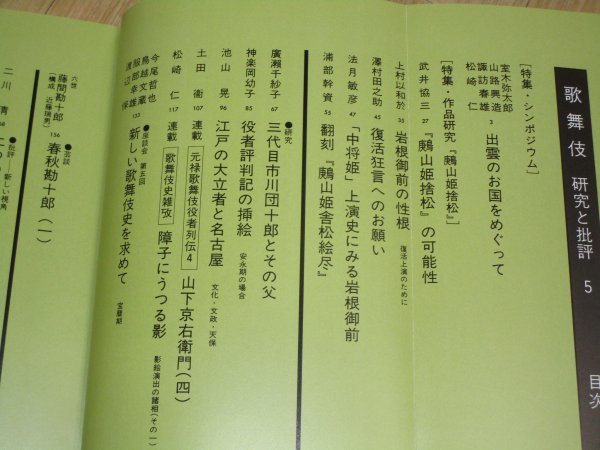 歌舞伎 研究と批評 5
目次
[特集・シンポジウム]
室木弥太郎
山路興造
諏訪春雄
松崎仁
3 出雲のお国をめぐって
[特集・作品研究『鶊山姫捨松』]
武井協三 27 『鶊山姫捨松』の可能性
上村以和於 35 岩根御前の性根 復活上演のために
澤村田之助 45 復活狂言へのお願い
法月敏彦 47 「中将姫」上演史にみる岩根御前
浦部幹資 55 翻刻『鶊山姫舎松絵尽』
●研究
廣瀬千紗子 67 三代目市川団十郎とその父
神楽岡幼子 85 役者評判記の挿絵 安永期の場合
池山晃 96 江戸の大立者と名古屋 文化・文政・天保
土田衞 107 連載 元禄歌舞伎役者列伝4 山下京右衛門(四)
松崎仁 117 連載 歌舞伎史雑攷 障子にうつる影 影絵演出の諸相(その一)
●座談会 第五回
今尾哲也
鳥越文蔵
服部幸雄
渡辺保
133 新しい歌舞伎史を求めて 宝暦期
●芸談
六世 藤間勘十郎
(構成 近藤瑞男)
156 春秋勘十郎(一)
●批評――新しい視角
二川清